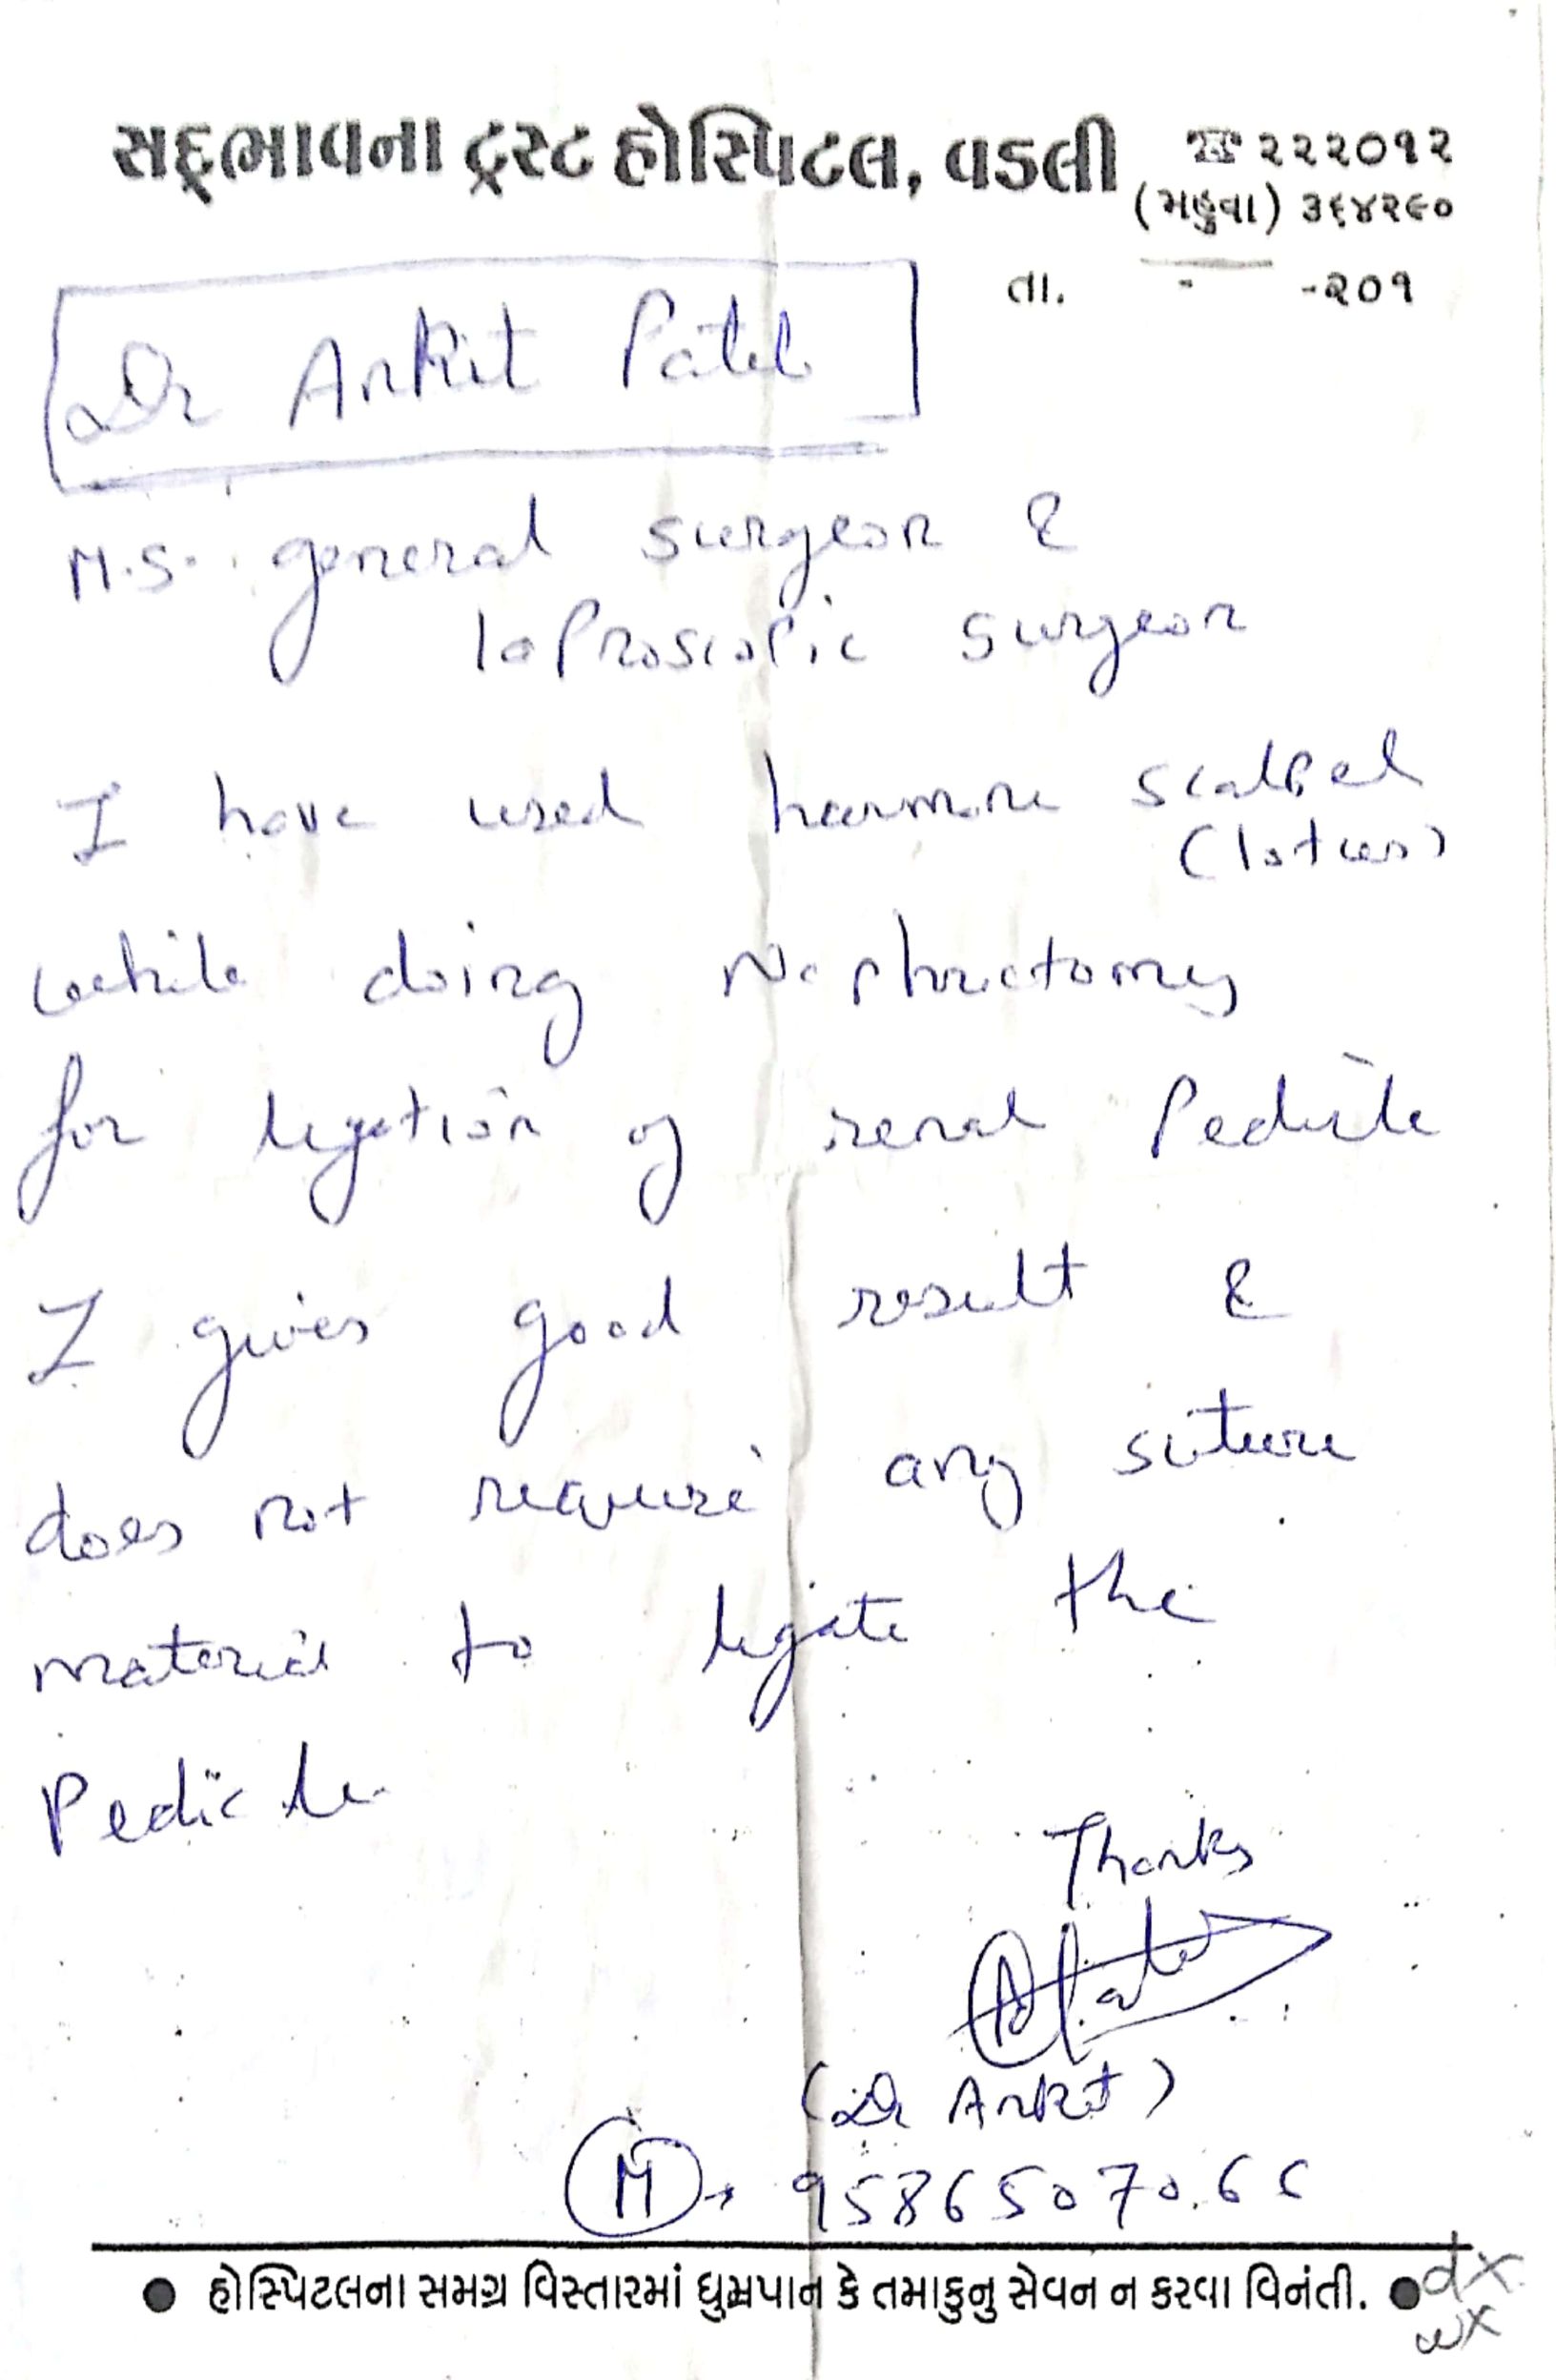 સદ્‌ભાવના ટ્રસ્ટ હોસ્પિટલ, વડલી ☎ ૨૨૨૦૧૨
(મહુવા) ૩૬૪૨૯૦
તા. - -૨૦૧
Dr Ankit Patel
M.S. general surgeon &
laproscopic surgeon
I have used scalpel
(lotus)
while doing Nephrectomy
for ligation of renal Pedicle
I gives good result &
does not require any suture
material to ligate the
Pedicle
Thanks
(Dr Ankit)
M → 95865070
● હોસ્પિટલના સમગ્ર વિસ્તારમાં ધુમ્રપાન કે તમાકુનુ સેવન ન કરવા વિનંતી. ●